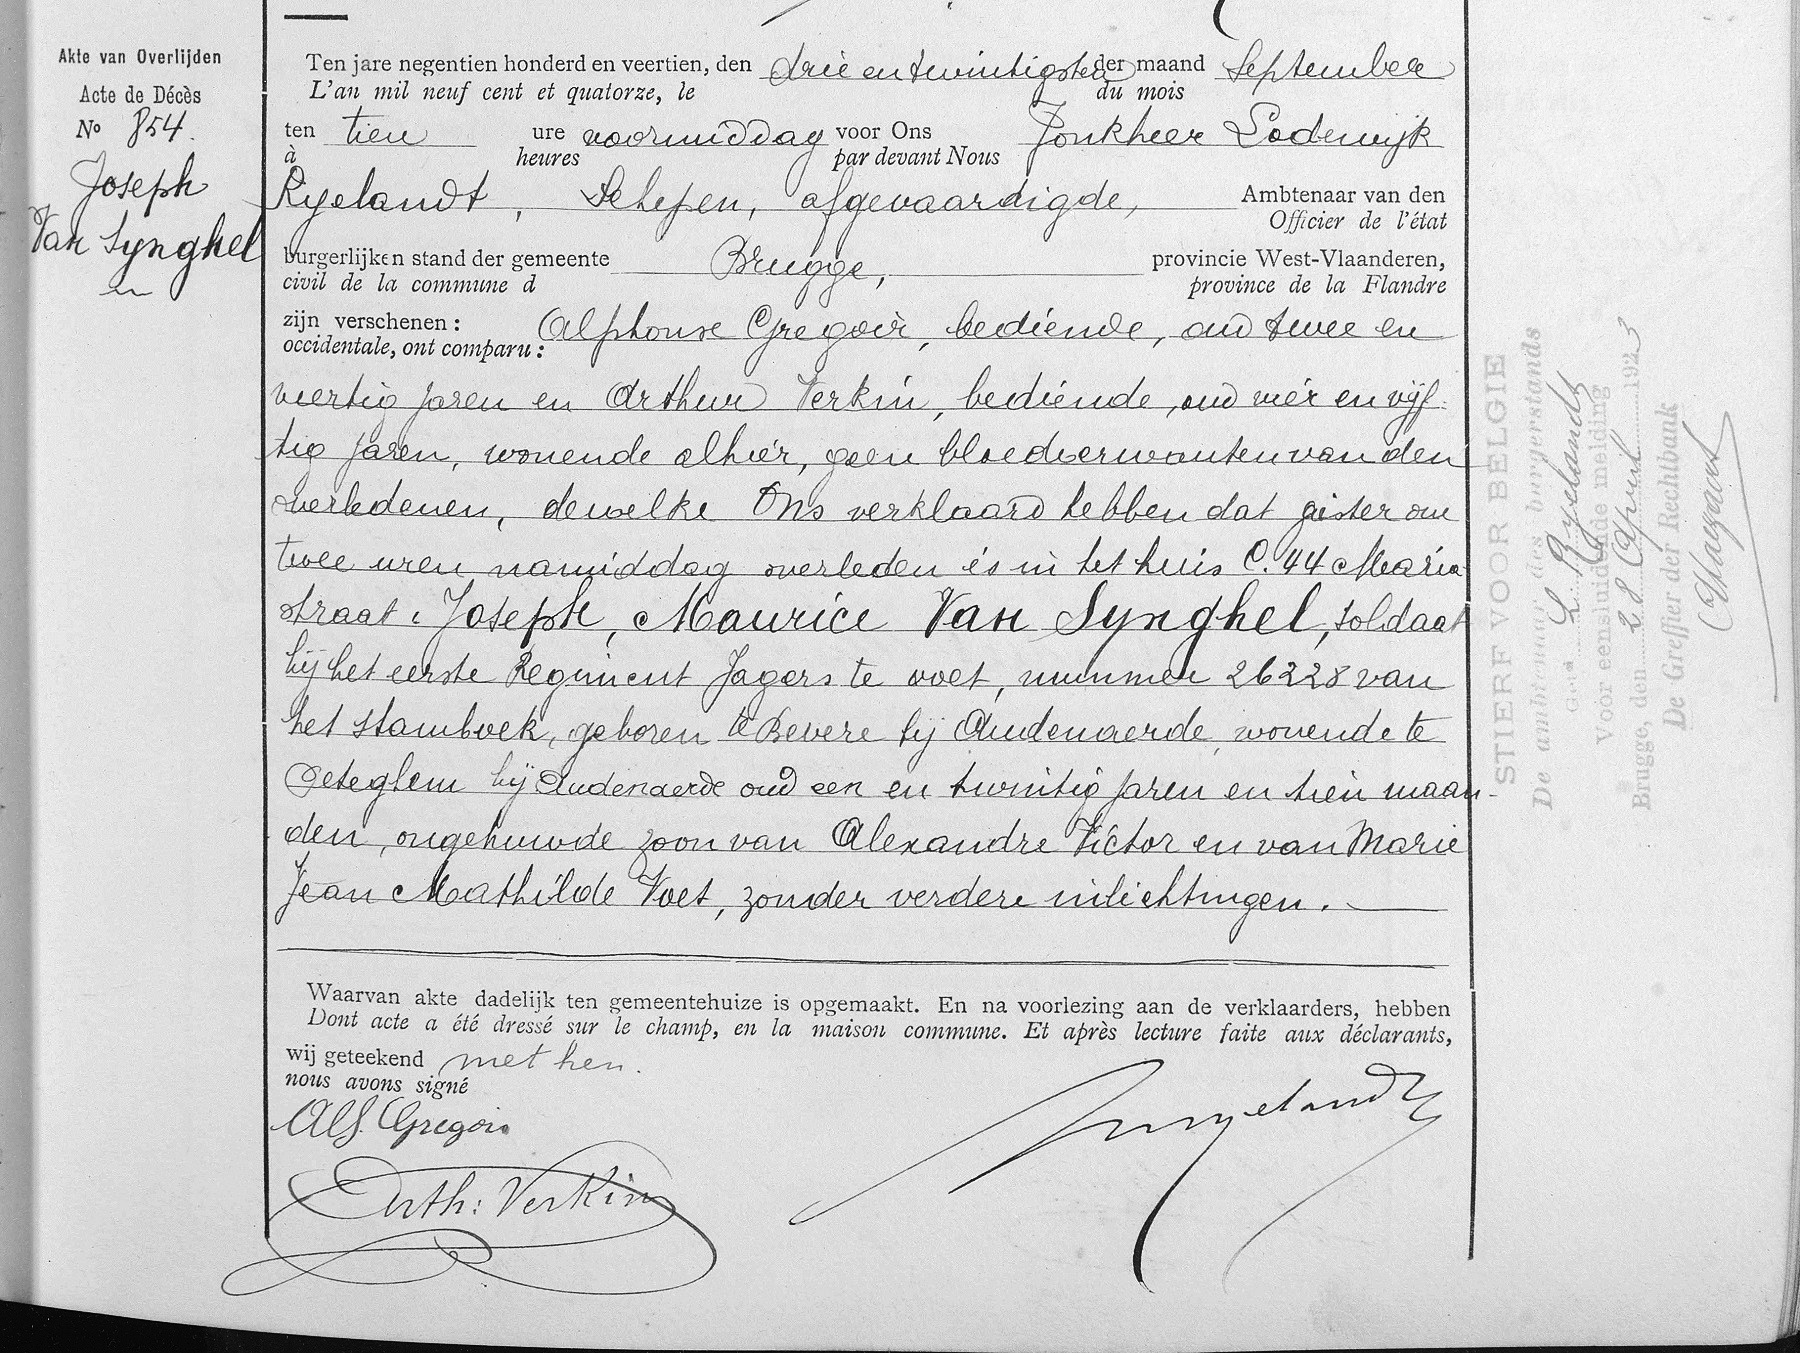 Akte van Overlijden
Acte de Décès
No 854.
Joseph
Van Synghel
Ten jare negentien honderd en veertien, den drie en twintigsten der maand September
L'an mil neuf cent et quatorze, le du mois
ten tien ure voormiddag voor Ons Jonkheer Lodewijk
à heures par devant Nous
Ryelandt, Schepen, afgevaardigde, Ambtenaar van den
Officier de l'état
burgerlijken stand der gemeente Brugge, provincie West-Vlaanderen,
civil de la commune d province de la Flandre
zijn verschenen : Alphonse Gregoir, bediende, oud twee en
occidentale, ont comparu :
veertig jaren en Arthur Verkin, bediende, oud vier en vijf-
tig jaren, wonende alhier, geen bloedverwanten van den
overledenen, dewelke Ons verklaard hebben dat gister om
twee uren namiddag overleden is in het huis C. 44 Maria
straat : Joseph, Maurice Van Synghel, soldaat
bij het eerste Regiment Jagers te voet, nummer 26228 van
het stamboek, geboren te Bevere bij Audenaerde, wonende te
Peteghem bij Audenaerde oud een en twintig jaren en tien maan-
den, ongehuwde zoon van Alexandre Victor en van Marie
Jean Mathilde Voet, zonder verdere inlichtingen.
Waarvan akte dadelijk ten gemeentehuize is opgemaakt. En na voorlezing aan de verklaarders, hebben
Dont acte a été dressé sur le champ, en la maison commune. Et après lecture faite aux déclarants,
wij geteekend met hen.
nous avons signé
Alf. Gregoir
Arth: Verkin
Ryelandt
STIERF VOOR BELGIE
De ambtenaar des burgerstands
Get. L. Ryelandt
Voor eensluidende melding
Brugge, den 28 April 1923
De Greffier der Rechtbank